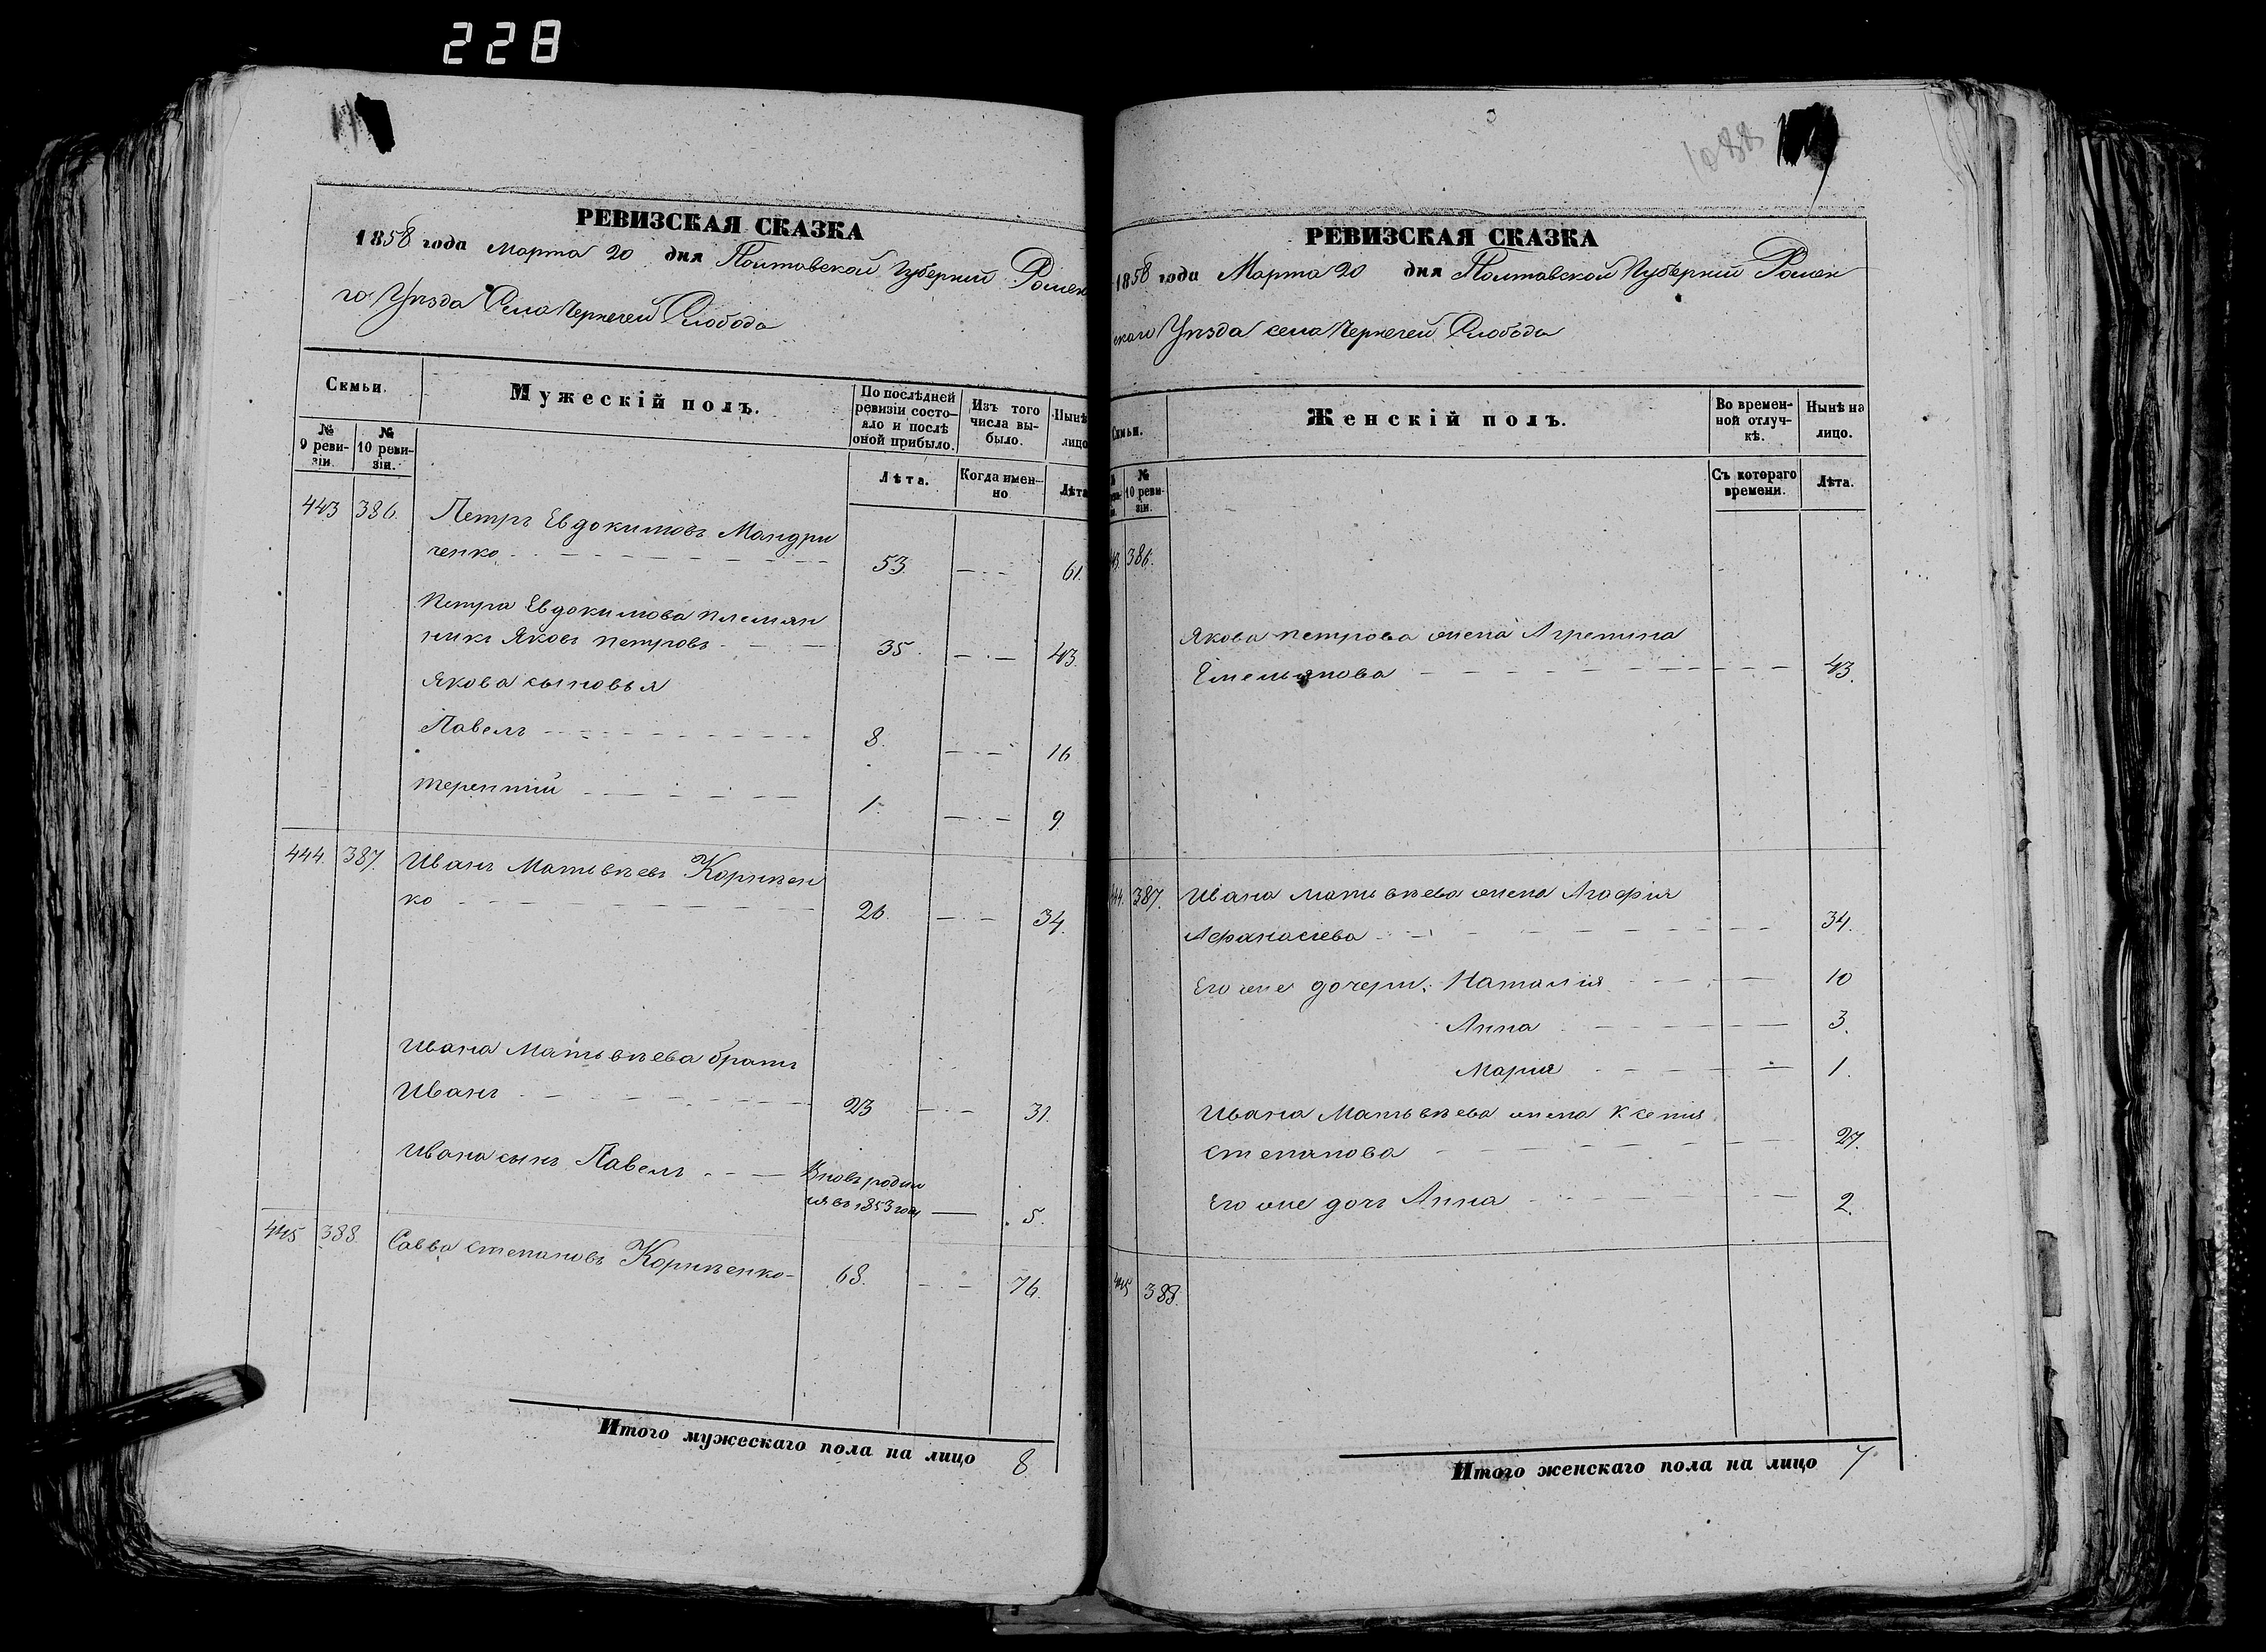 228
РЕВИЗСКАЯ СКАЗКА
1858 года Марта 20 дня Полтавской Губернии Ромен
го Уѣзда Села Чернечей Слободы
Семьи.
Мужескій полъ.
По послѣдней ревизіи состояло и послѣ оной прибыло.
Изъ того числа выбыло.
Нынѣ лицо
№ 9 ревизіи.
№ 10 ревизіи.
Лѣта.
Когда именно
Лѣта
443 386. Петръ Евдокимовъ Мандри
ченко 53. 61.
Петра Евдокимова племян
никъ Яковъ Петровъ 35. 43.
Якова сыновья
Павелъ 8. 16
Терентій 1. 9
444. 387. Иванъ Матвѣевъ Корнѣен
ко 26. 34.
Ивана Матвѣева братъ
Иванъ 23 31.
Ивана сынъ Павелъ Вновь родил
ся въ 1853 году 5.
445 388. Савва Степановъ Корнѣенко 68. 76.
Итого мужескаго пола на лицо 8
1088
РЕВИЗСКАЯ СКАЗКА
1858 года Марта 20 дня Полтавской Губернии Ромен
скаго Уѣзда села Чернечей Слободы
Семьи.
Женскій полъ.
Во временной отлучкѣ.
Нынѣ на лицо.
№ 10 ревизіи.
Съ котораго времени.
Лѣта.
386.
Якова Петрова жена Агрепина
Емельянова 43.
444. 387. Ивана Матвѣева жена Агафия
Афанасиева 34.
Его же дочери: Наталия 10
Анна 3.
Мария 1.
Ивана Матвѣева жена Ксения
Степанова 27.
Его же дочь Анна 2.
445 388.
Итого женскаго пола на лицо 7